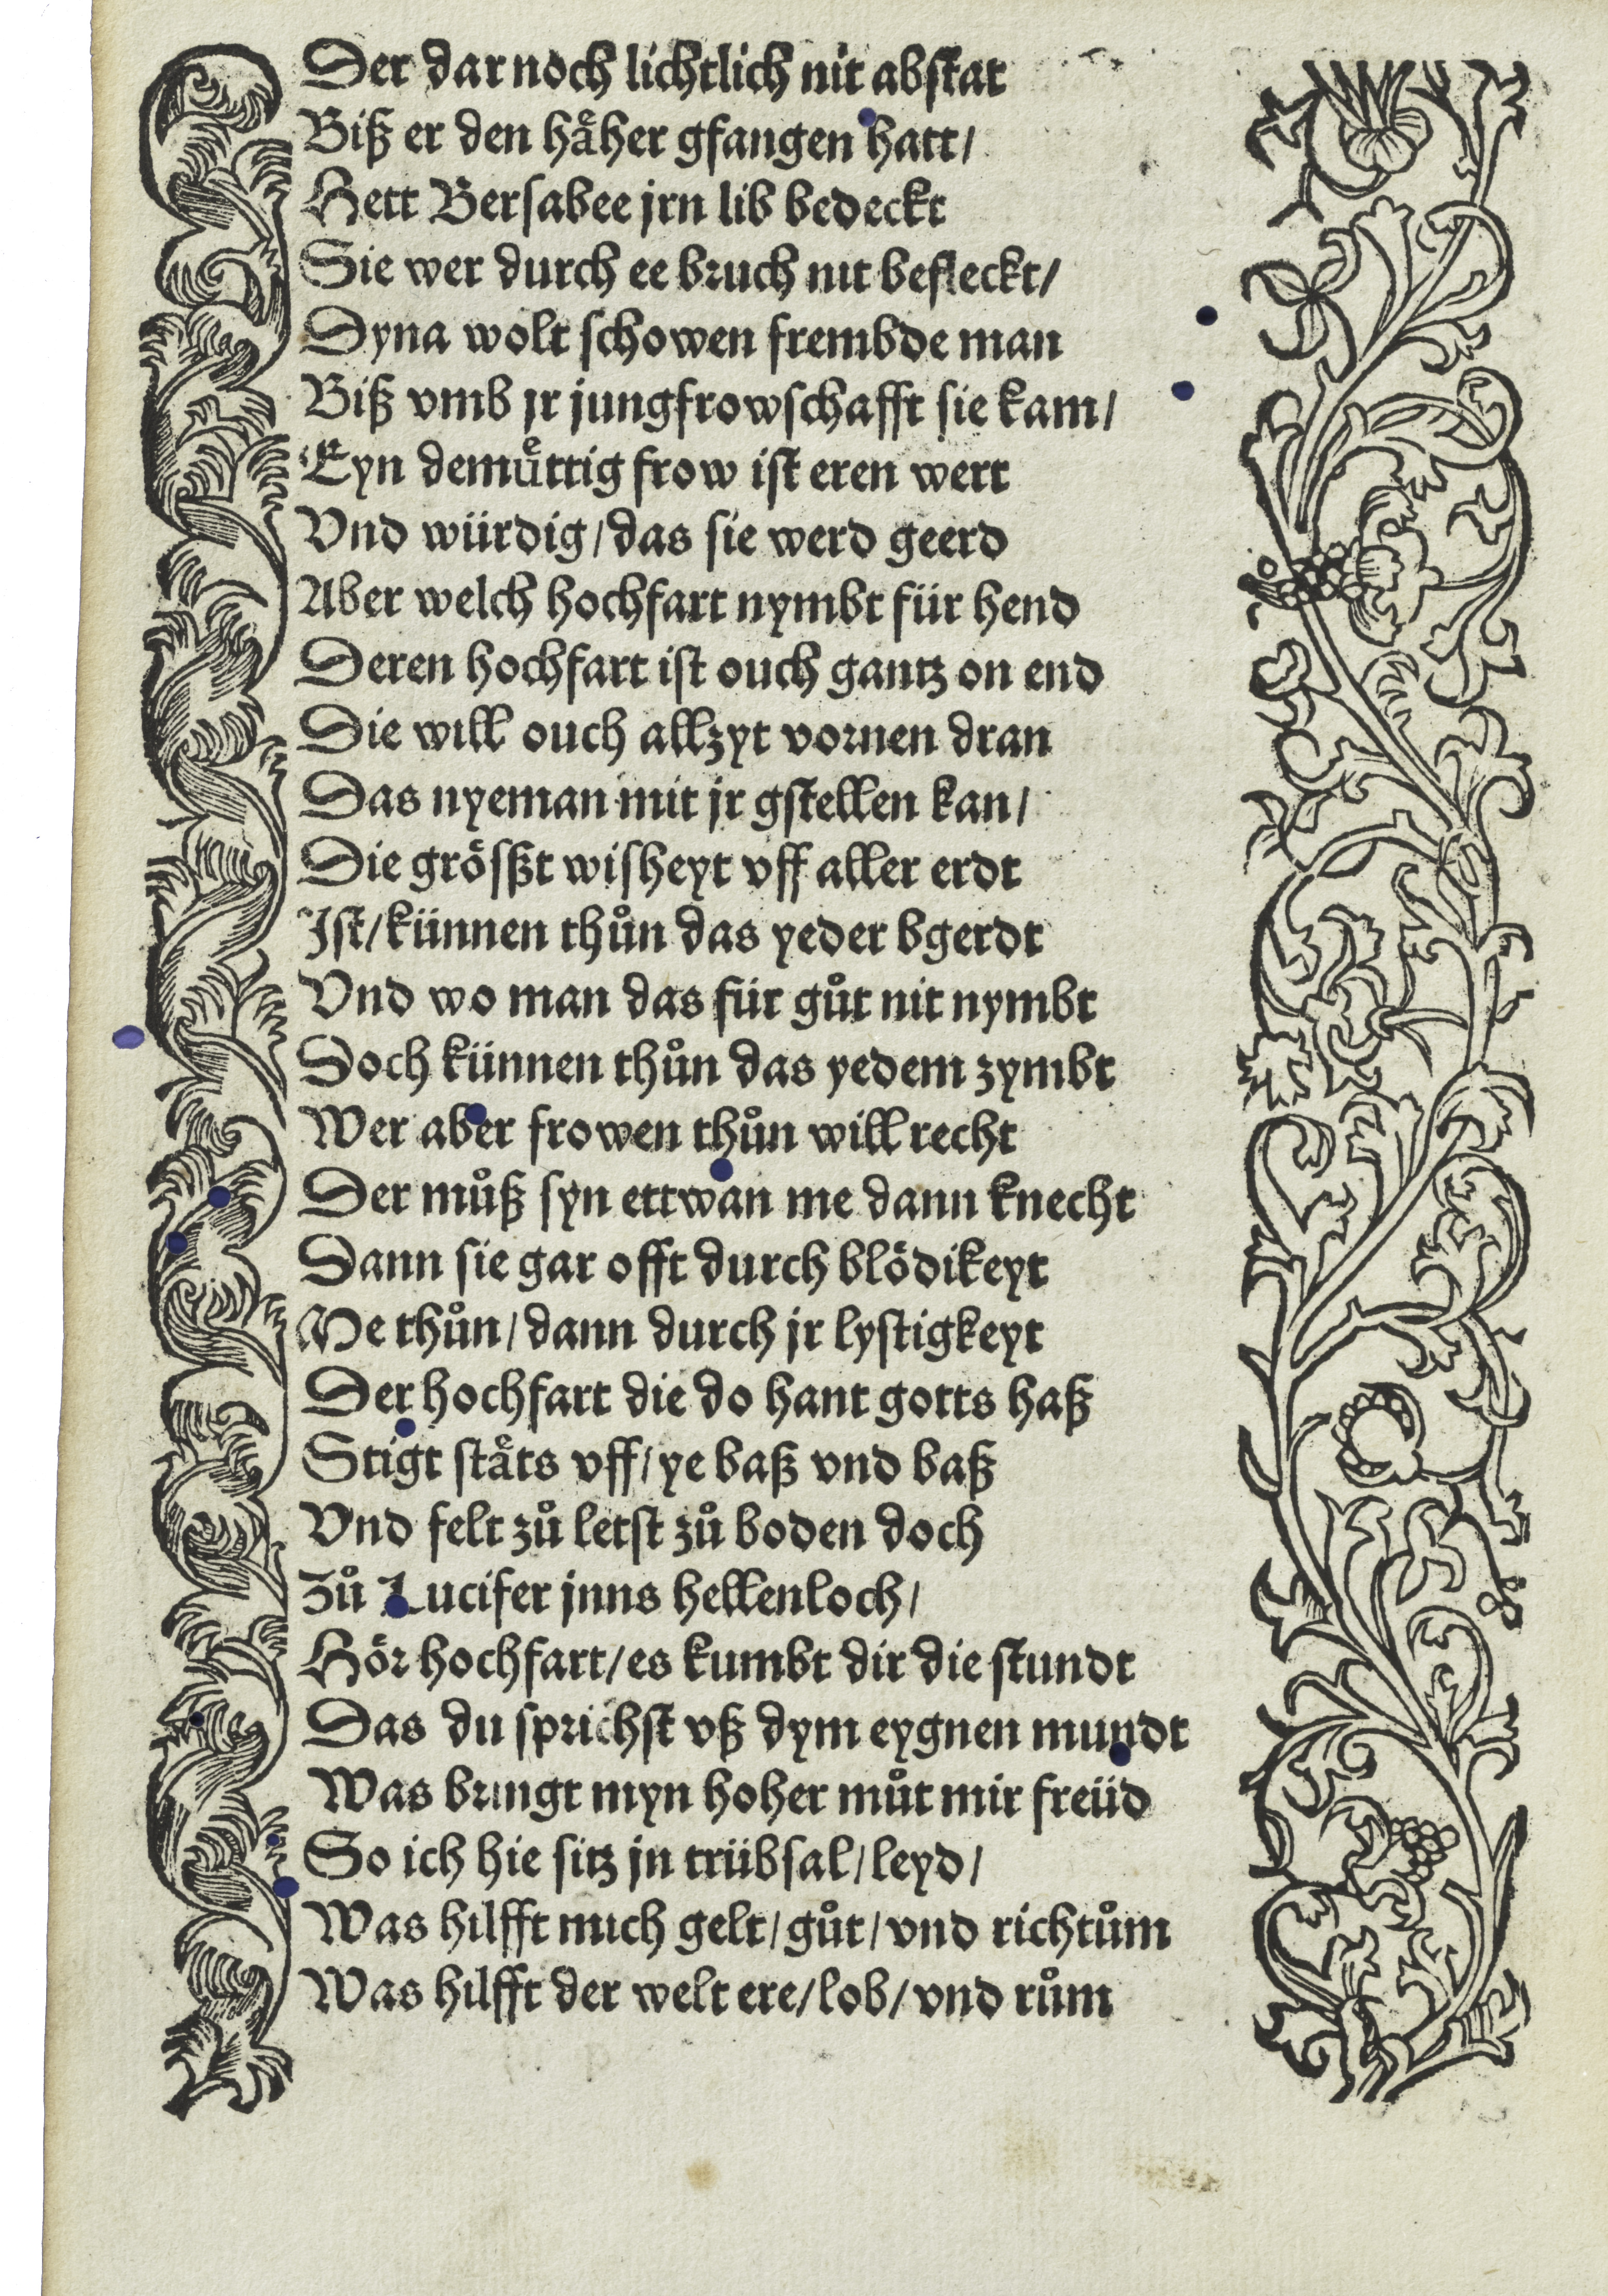 Der dar noch lichtlich nit abstat
Biß er den haͤher gfangen hatt/
Hett Bersabee jrn lib bedeckt
Sie wer durch ee bruch nit befleckt/
Dyna wolt schowen frembde man
Biß vmb jr jungfrowschafft sie kam/
Eyn demuͤttig frow ist eren wert
Vnd würdig/das sie werd geerd
Aber welch hochfart nymbt für hend
Deren hochfart ist ouch gantz on end
Die will ouch allzyt vornen dran
Das nyeman mit jr gstellen kan/
Die groͤsßt wisheyt vff aller erdt
Ist/künnen thuͦn das yeder bgerdt
Vnd wo man das für guͦt nit nymbt
Doch künnen thuͦn das yedem zymbt
Wer aber frowen thuͦn will recht
Der muͦß syn ettwan me dann knecht
Dann sie gar offt durch bloͤdikeyt
Me thuͦn/dann durch jr lystigkeyt
Der hochfart die do hant gotts haß
Stigt staͤts vff/ye baß vnd baß
Vnd felt zuͦ letst zuͦ boden doch
Zuͦ Lucifer jnns hellenloch/
Hoͤr hochfart/es kumbt dir die stundt
Das du sprichst vß dym eygnen mundt
Was bringt myn hoher muͦt mir freüd
So ich hie sitz jn trübsal/leyd/
Was hilfft mich gelt/guͦt/vnd richtuͦm
Was hilfft der welt ere/lob/vnd ruͦm